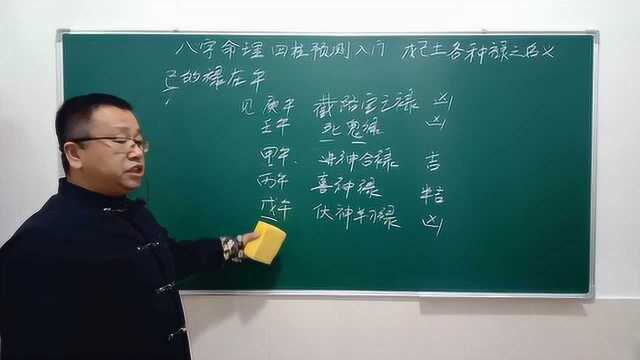 八字命理四柱预测入门 戊己土各种禄之含义
己的禄在午
见庚午 截路空亡禄 凶
壬午 死鬼禄 凶
甲午 进神合禄 吉
丙午 喜神禄 半吉
戊午 伏神羊刃禄 凶